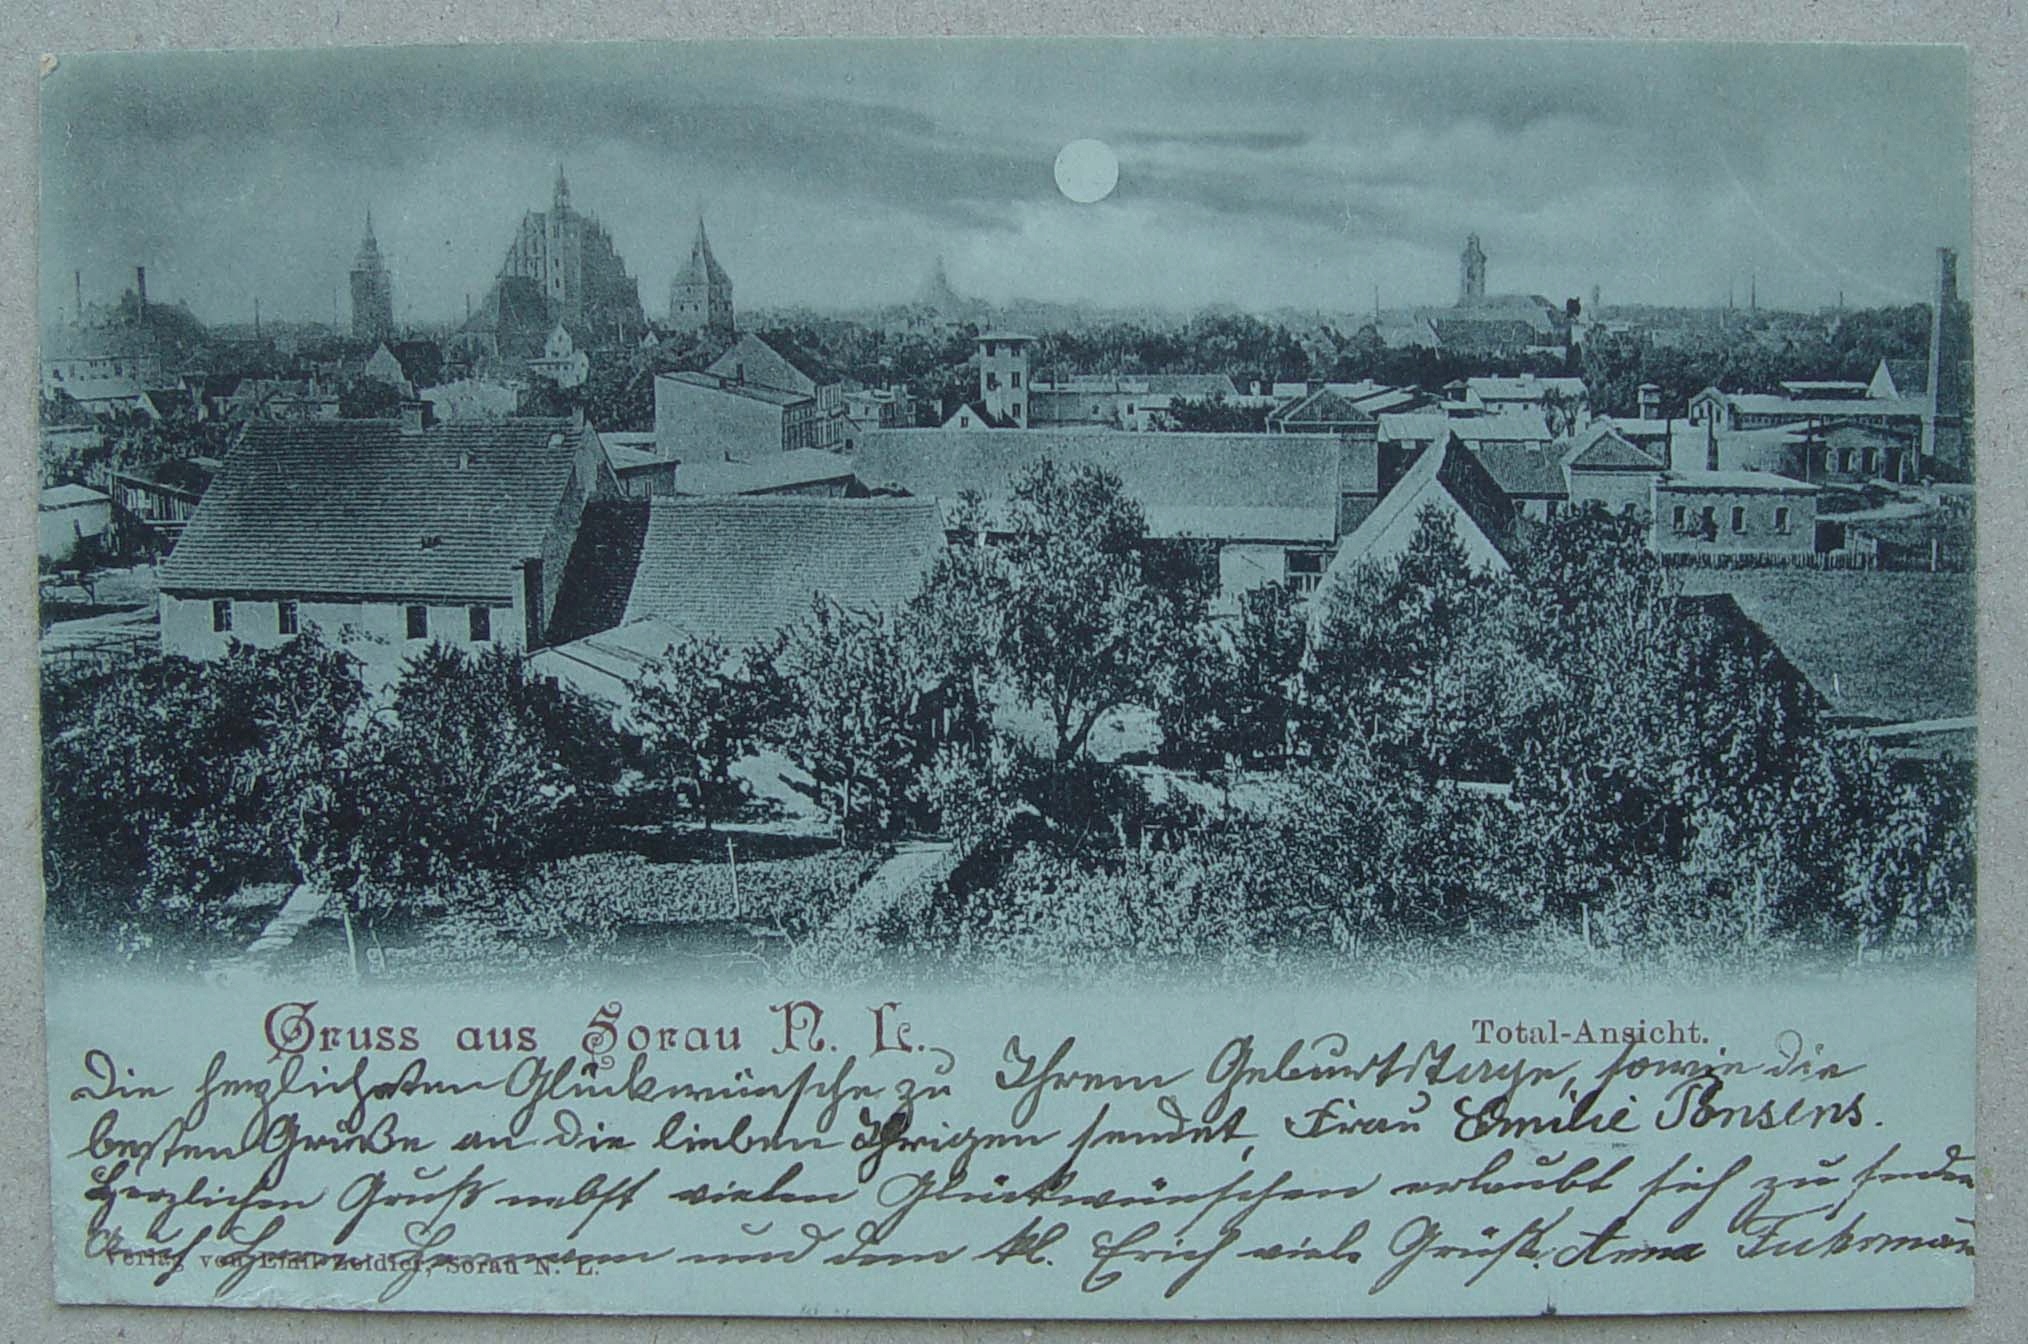 Gruss aus Sorau N. L.
Total-Ansicht.
Die herzlichsten Glückwünsche zu Ihrem Geburtstage, sowie die
besten Grüße an die lieben Ihrigen sendet, Frau Emilie
Herzlichen Gruß nebst vielen Glückwünschen erlaubt sich zu senden
Auch Herrn und dem kl. Erich viele Grüße. Anna
Verlag von Emil Zeidler, Sorau N. L.